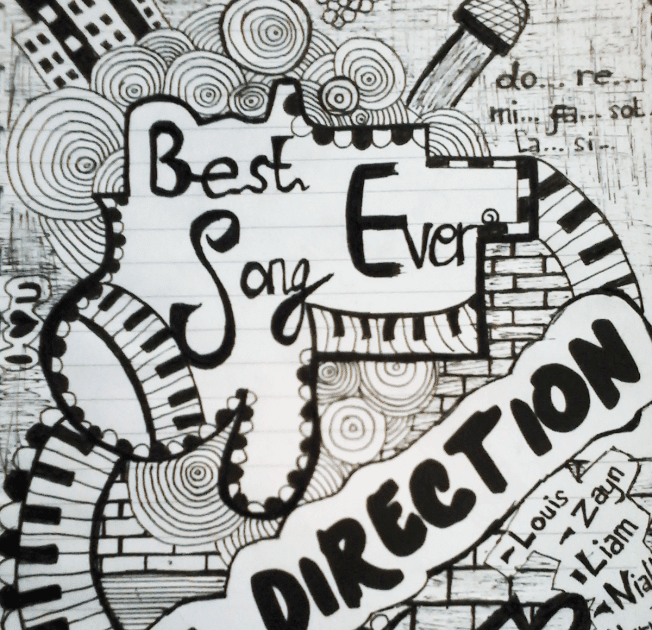 do... re....
mi... fa... sol.
La... si...
Best
Ever
Song
I ♥ U
DIRECTION
- Louis
- Zayn
- Liam